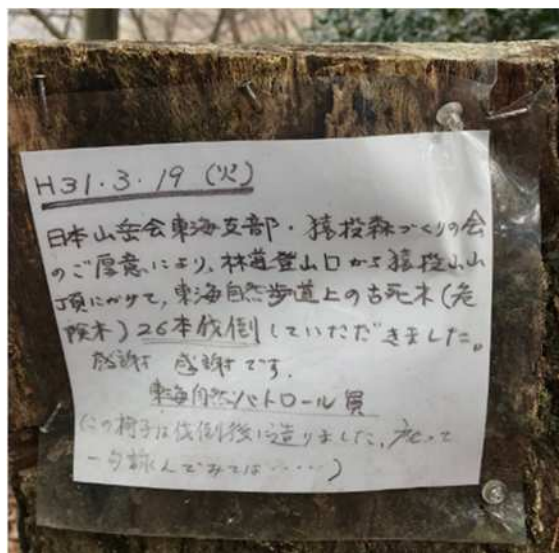 H31.3.19 (火)
日本山岳会東海支部・猿投森づくりの会
のご厚意により、林道登山口から猿投山山
頂にかけて、東海自然歩道上の古死木(危
険木)26本伐倒していただきました。
感謝 感謝です.
東海自然パトロール員
(この椅子は伐倒後に造りました、座って
一句詠んでみては……)